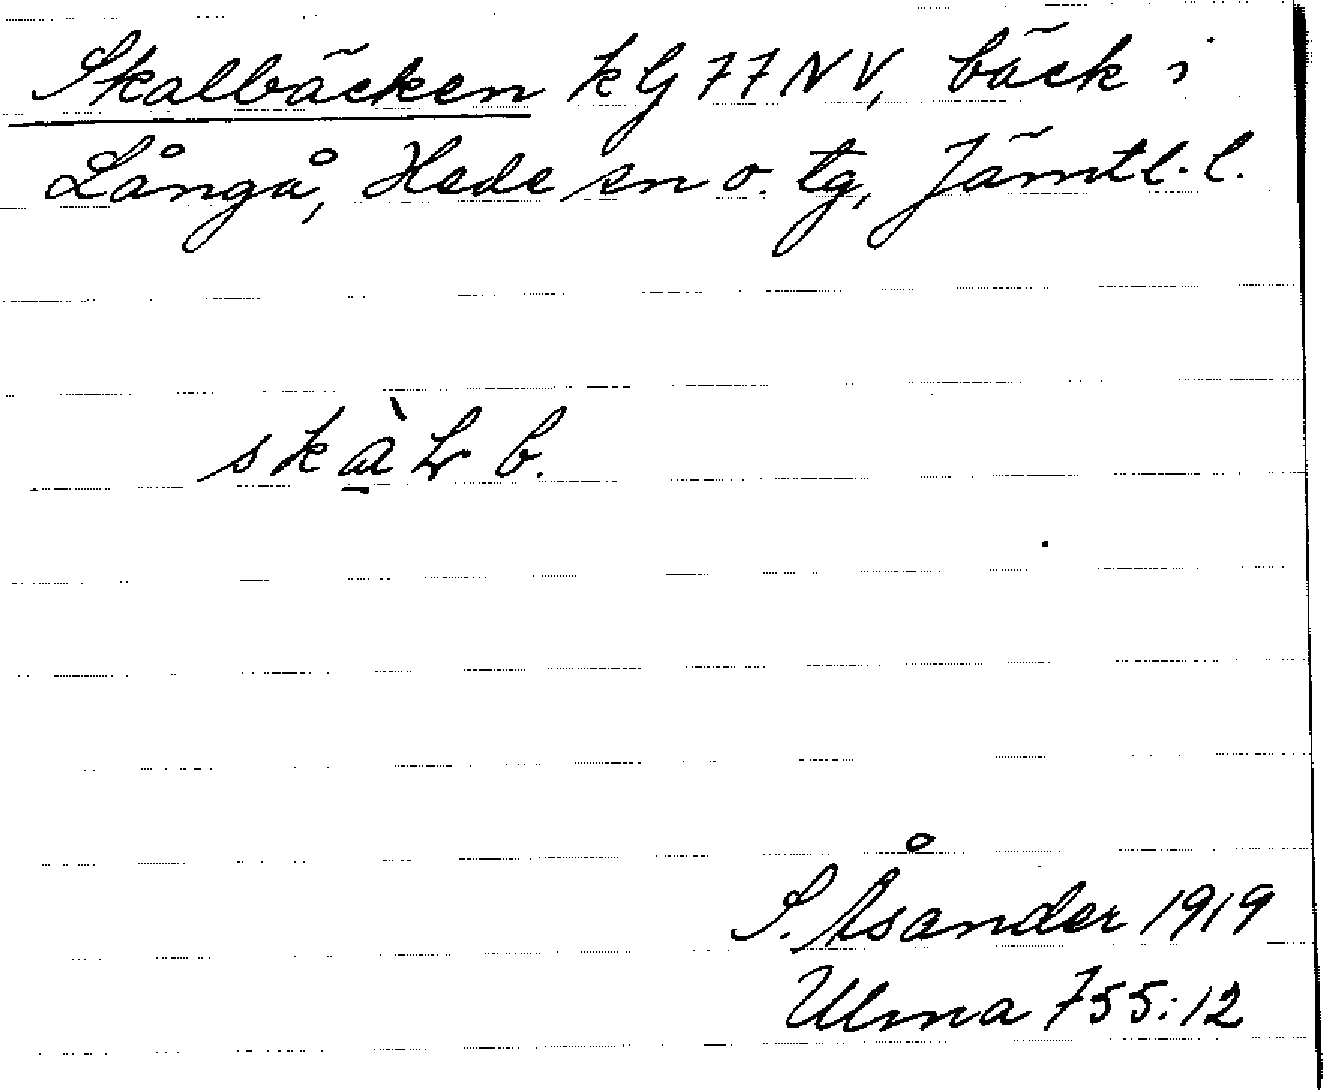 Skalbäcken kG 77 NV, bäck i
Långå, Hede sn o. tg, Jämtl. l.
skàL b.
S. Åsander 1919
Ulma 755:12